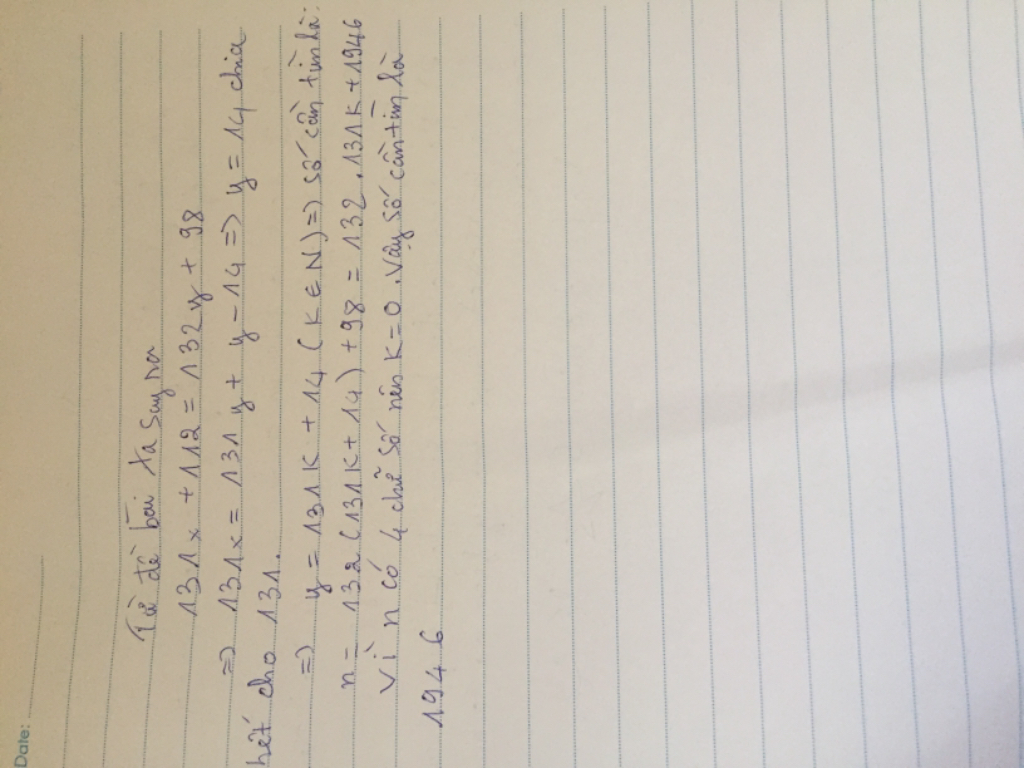 Date:
Từ đề bài ta suy ra
131x + 112 = 132y + 98
=> 131x = 131y + y - 14 => y = 14 chia
hết cho 131.
=> y = 131K + 14 ( K ∈ N) => số cần tìm là:
n = 132 (131K + 14) + 98 = 132.131K + 1946
Vì n có 4 chữ số nên K = 0. Vậy số cần tìm là
1946